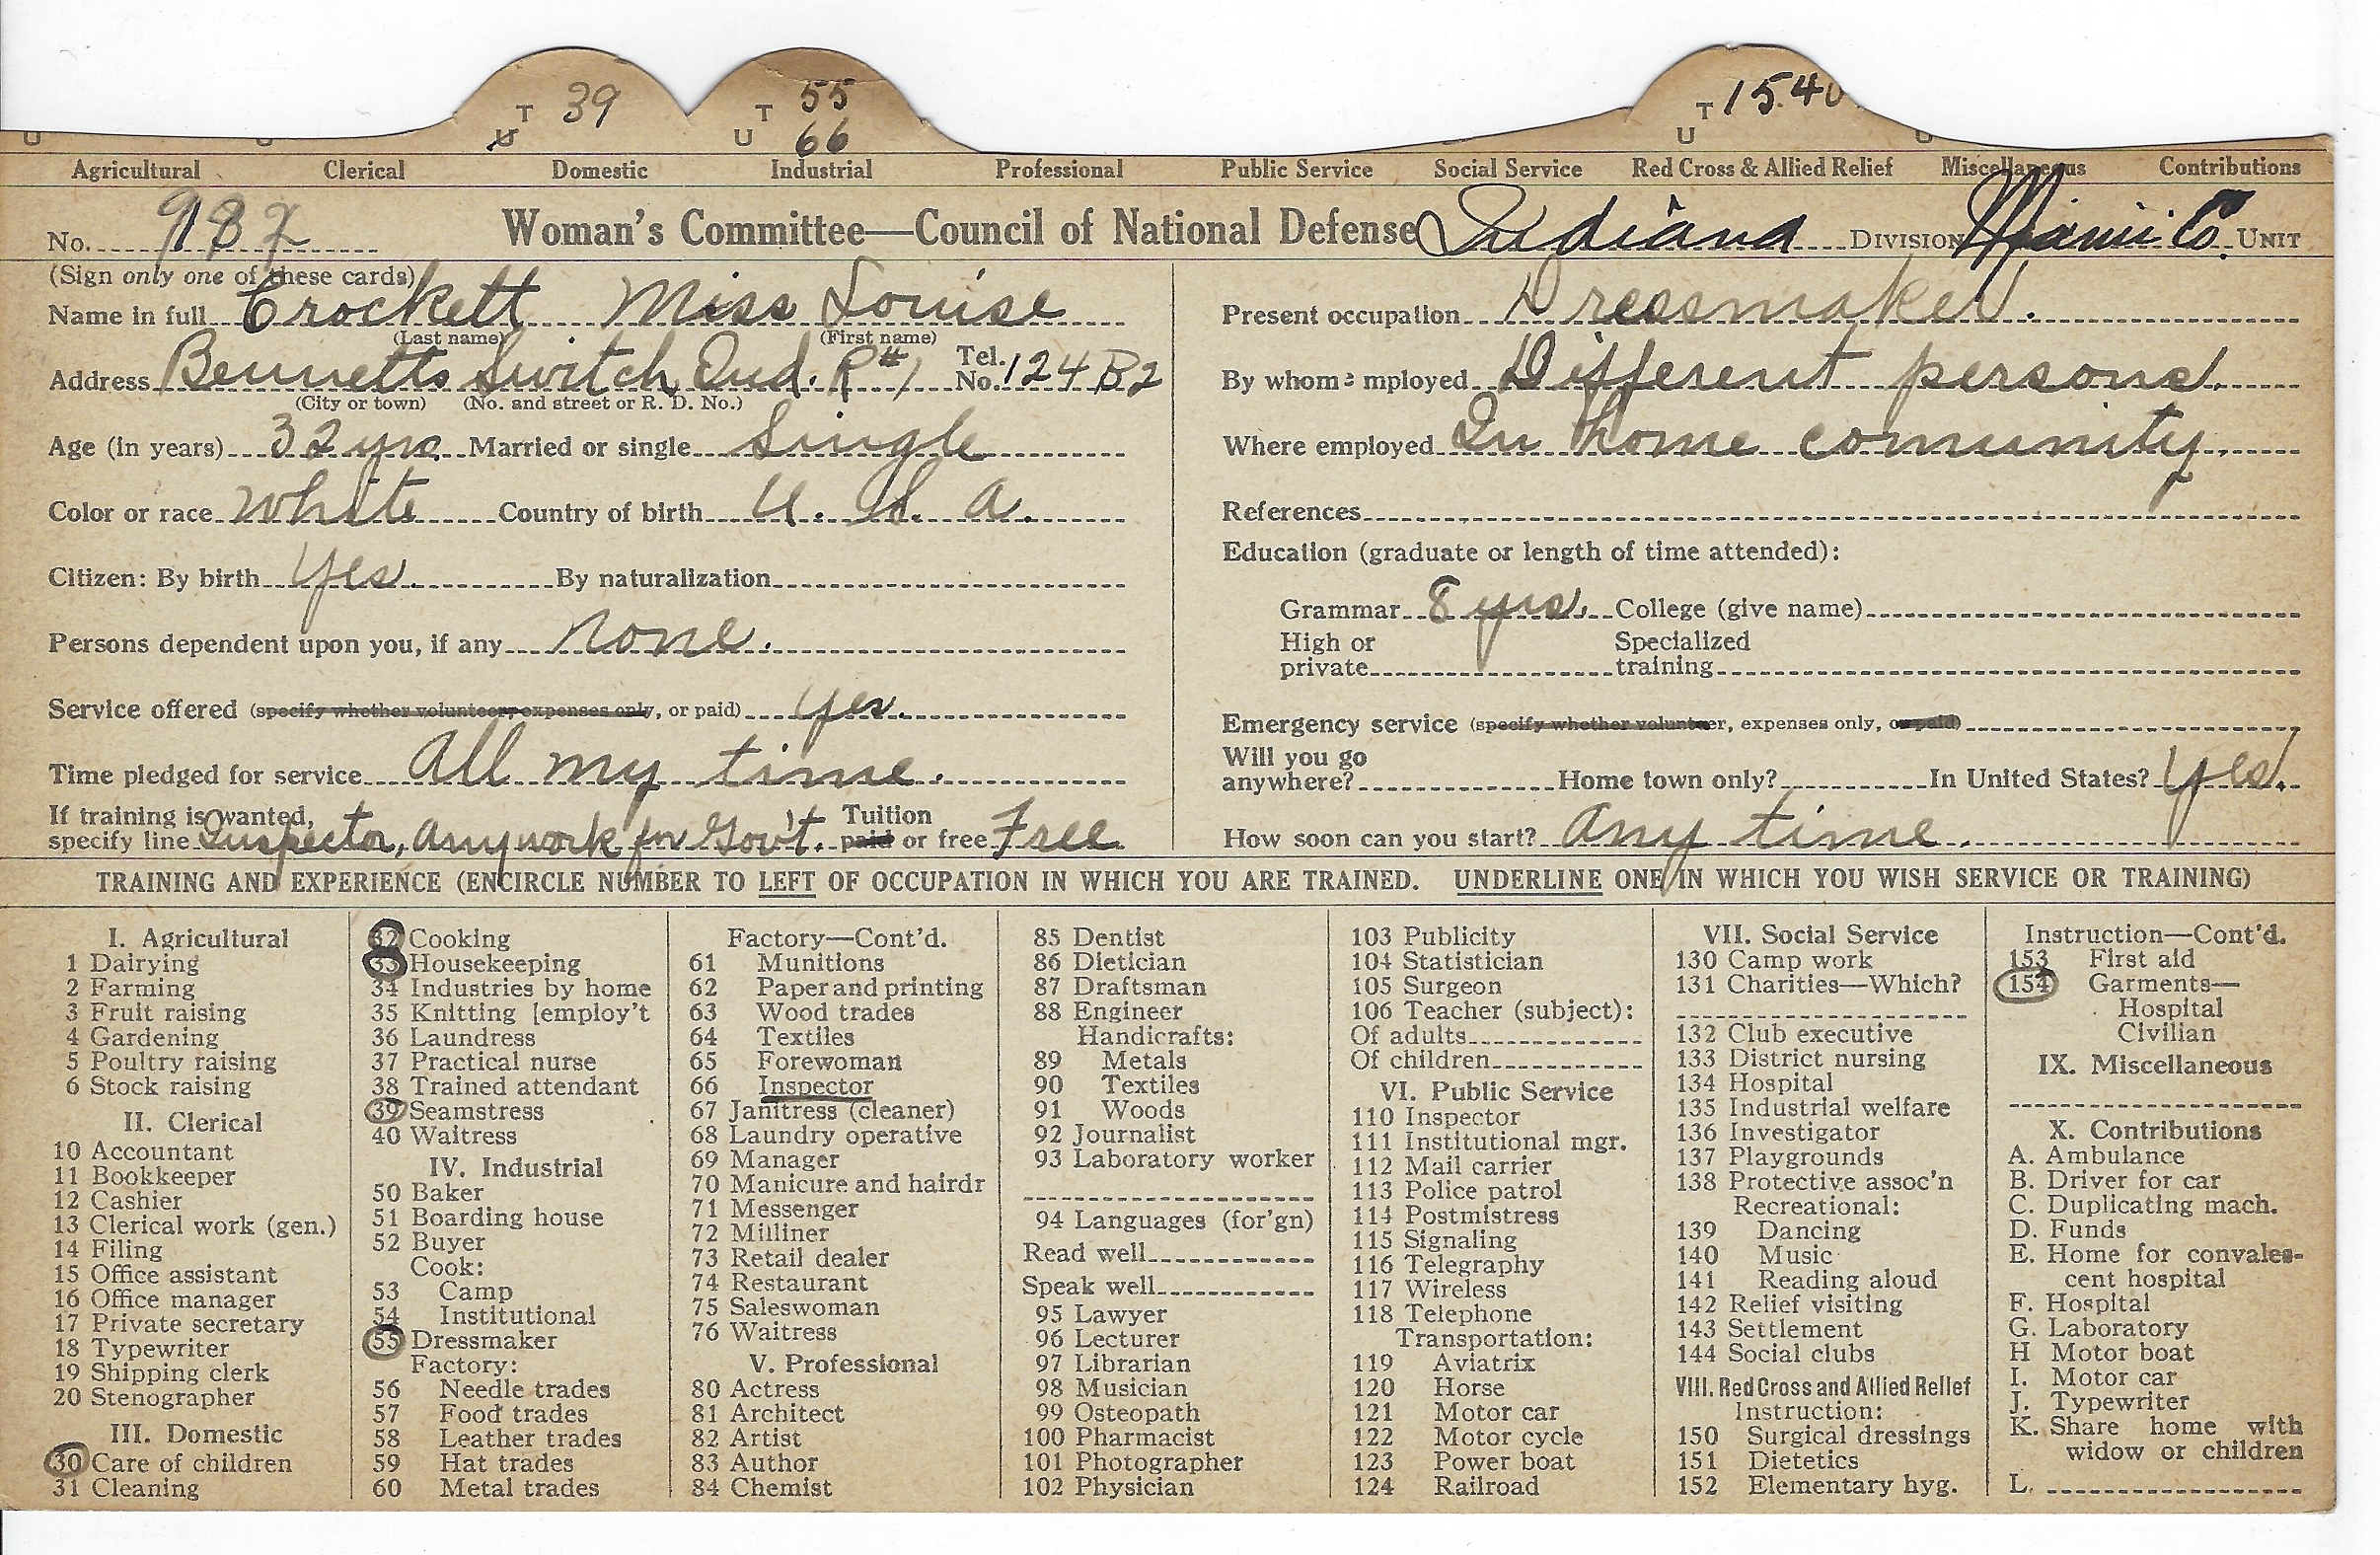 T 39 T 55 T 154
U U U 66 U U
Agricultural Clerical Domestic Industrial Professional Public Service Social Service Red Cross & Allied Relief Miscellaneous Contributions
No. 987 Woman's Committee—Council of National Defense Indiana DIVISION Miami Co. UNIT
(Sign only one of these cards)
Name in full Crockett Miss Louise
(Last name) (First name)
Address Bennetts Switch Ind. R#1 Tel. No. 124 B2
(City or town) (No. and street or R. D. No.)
Age (in years) 32 yrs. Married or single Single
Color or race White Country of birth U. S. A.
Citizen: By birth Yes. By naturalization
Persons dependent upon you, if any None.
Service offered (specify whether volunteer, expenses only, or paid) Yes.
Time pledged for service All my time.
If training is wanted,
specify line Inspector, Any work for Gov't. Tuition paid or free Free
Present occupation Dressmaker.
By whom employed Different persons.
Where employed In home comunity.
References
Education (graduate or length of time attended):
Grammar 8 yrs. College (give name)
High or private Specialized training
Emergency service (specify whether volunteer, expenses only, or paid)
Will you go anywhere? Home town only? In United States? Yes.
How soon can you start? Any time.
TRAINING AND EXPERIENCE (ENCIRCLE NUMBER TO LEFT OF OCCUPATION IN WHICH YOU ARE TRAINED. UNDERLINE ONE IN WHICH YOU WISH SERVICE OR TRAINING)
I. Agricultural
1 Dairying
2 Farming
3 Fruit raising
4 Gardening
5 Poultry raising
6 Stock raising
II. Clerical
10 Accountant
11 Bookkeeper
12 Cashier
13 Clerical work (gen.)
14 Filing
15 Office assistant
16 Office manager
17 Private secretary
18 Typewriter
19 Shipping clerk
20 Stenographer
III. Domestic
30 Care of children
31 Cleaning
32 Cooking
33 Housekeeping
34 Industries by home
35 Knitting [employ't
36 Laundress
37 Practical nurse
38 Trained attendant
39 Seamstress
40 Waitress
IV. Industrial
50 Baker
51 Boarding house
52 Buyer
Cook:
53 Camp
54 Institutional
55 Dressmaker
Factory:
56 Needle trades
57 Food trades
58 Leather trades
59 Hat trades
60 Metal trades
Factory—Cont'd.
61 Munitions
62 Paper and printing
63 Wood trades
64 Textiles
65 Forewoman
66 Inspector
67 Janitress (cleaner)
68 Laundry operative
69 Manager
70 Manicure and hairdr
71 Messenger
72 Milliner
73 Retail dealer
74 Restaurant
75 Saleswoman
76 Waitress
V. Professional
80 Actress
81 Architect
82 Artist
83 Author
84 Chemist
85 Dentist
86 Dietician
87 Draftsman
88 Engineer
Handicrafts:
89 Metals
90 Textiles
91 Woods
92 Journalist
93 Laboratory worker
94 Languages (for'gn)
Read well
Speak well
95 Lawyer
96 Lecturer
97 Librarian
98 Musician
99 Osteopath
100 Pharmacist
101 Photographer
102 Physician
103 Publicity
104 Statistician
105 Surgeon
106 Teacher (subject):
Of adults
Of children
VI. Public Service
110 Inspector
111 Institutional mgr.
112 Mail carrier
113 Police patrol
114 Postmistress
115 Signaling
116 Telegraphy
117 Wireless
118 Telephone
Transportation:
119 Aviatrix
120 Horse
121 Motor car
122 Motor cycle
123 Power boat
124 Railroad
VII. Social Service
130 Camp work
131 Charities—Which?
132 Club executive
133 District nursing
134 Hospital
135 Industrial welfare
136 Investigator
137 Playgrounds
138 Protective assoc'n
Recreational:
139 Dancing
140 Music
141 Reading aloud
142 Relief visiting
143 Settlement
144 Social clubs
VIII. Red Cross and Allied Relief
Instruction:
150 Surgical dressings
151 Dietetics
152 Elementary hyg.
Instruction—Cont'd.
153 First aid
154 Garments—
Hospital
Civilian
IX. Miscellaneous
X. Contributions
A. Ambulance
B. Driver for car
C. Duplicating mach.
D. Funds
E. Home for convales-
cent hospital
F. Hospital
G. Laboratory
H Motor boat
I. Motor car
J. Typewriter
K. Share home with
widow or children
L.